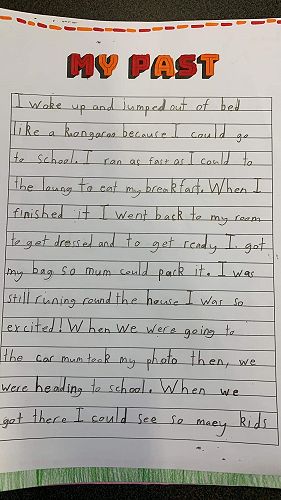 MY PAST
I woke up and jumped out of bed
like a kangaroo because I could go
to school. I ran as fast as I could to
the loung to eat my breakfast. When I
finished it I went back to my room
to get dressed and to get ready I got
my bag so mum could pack it. I was
still runing round the house I was so
excited! When we were going to
the car mum took my photo then, we
were heading to school. When we
got there I could see so maey kids